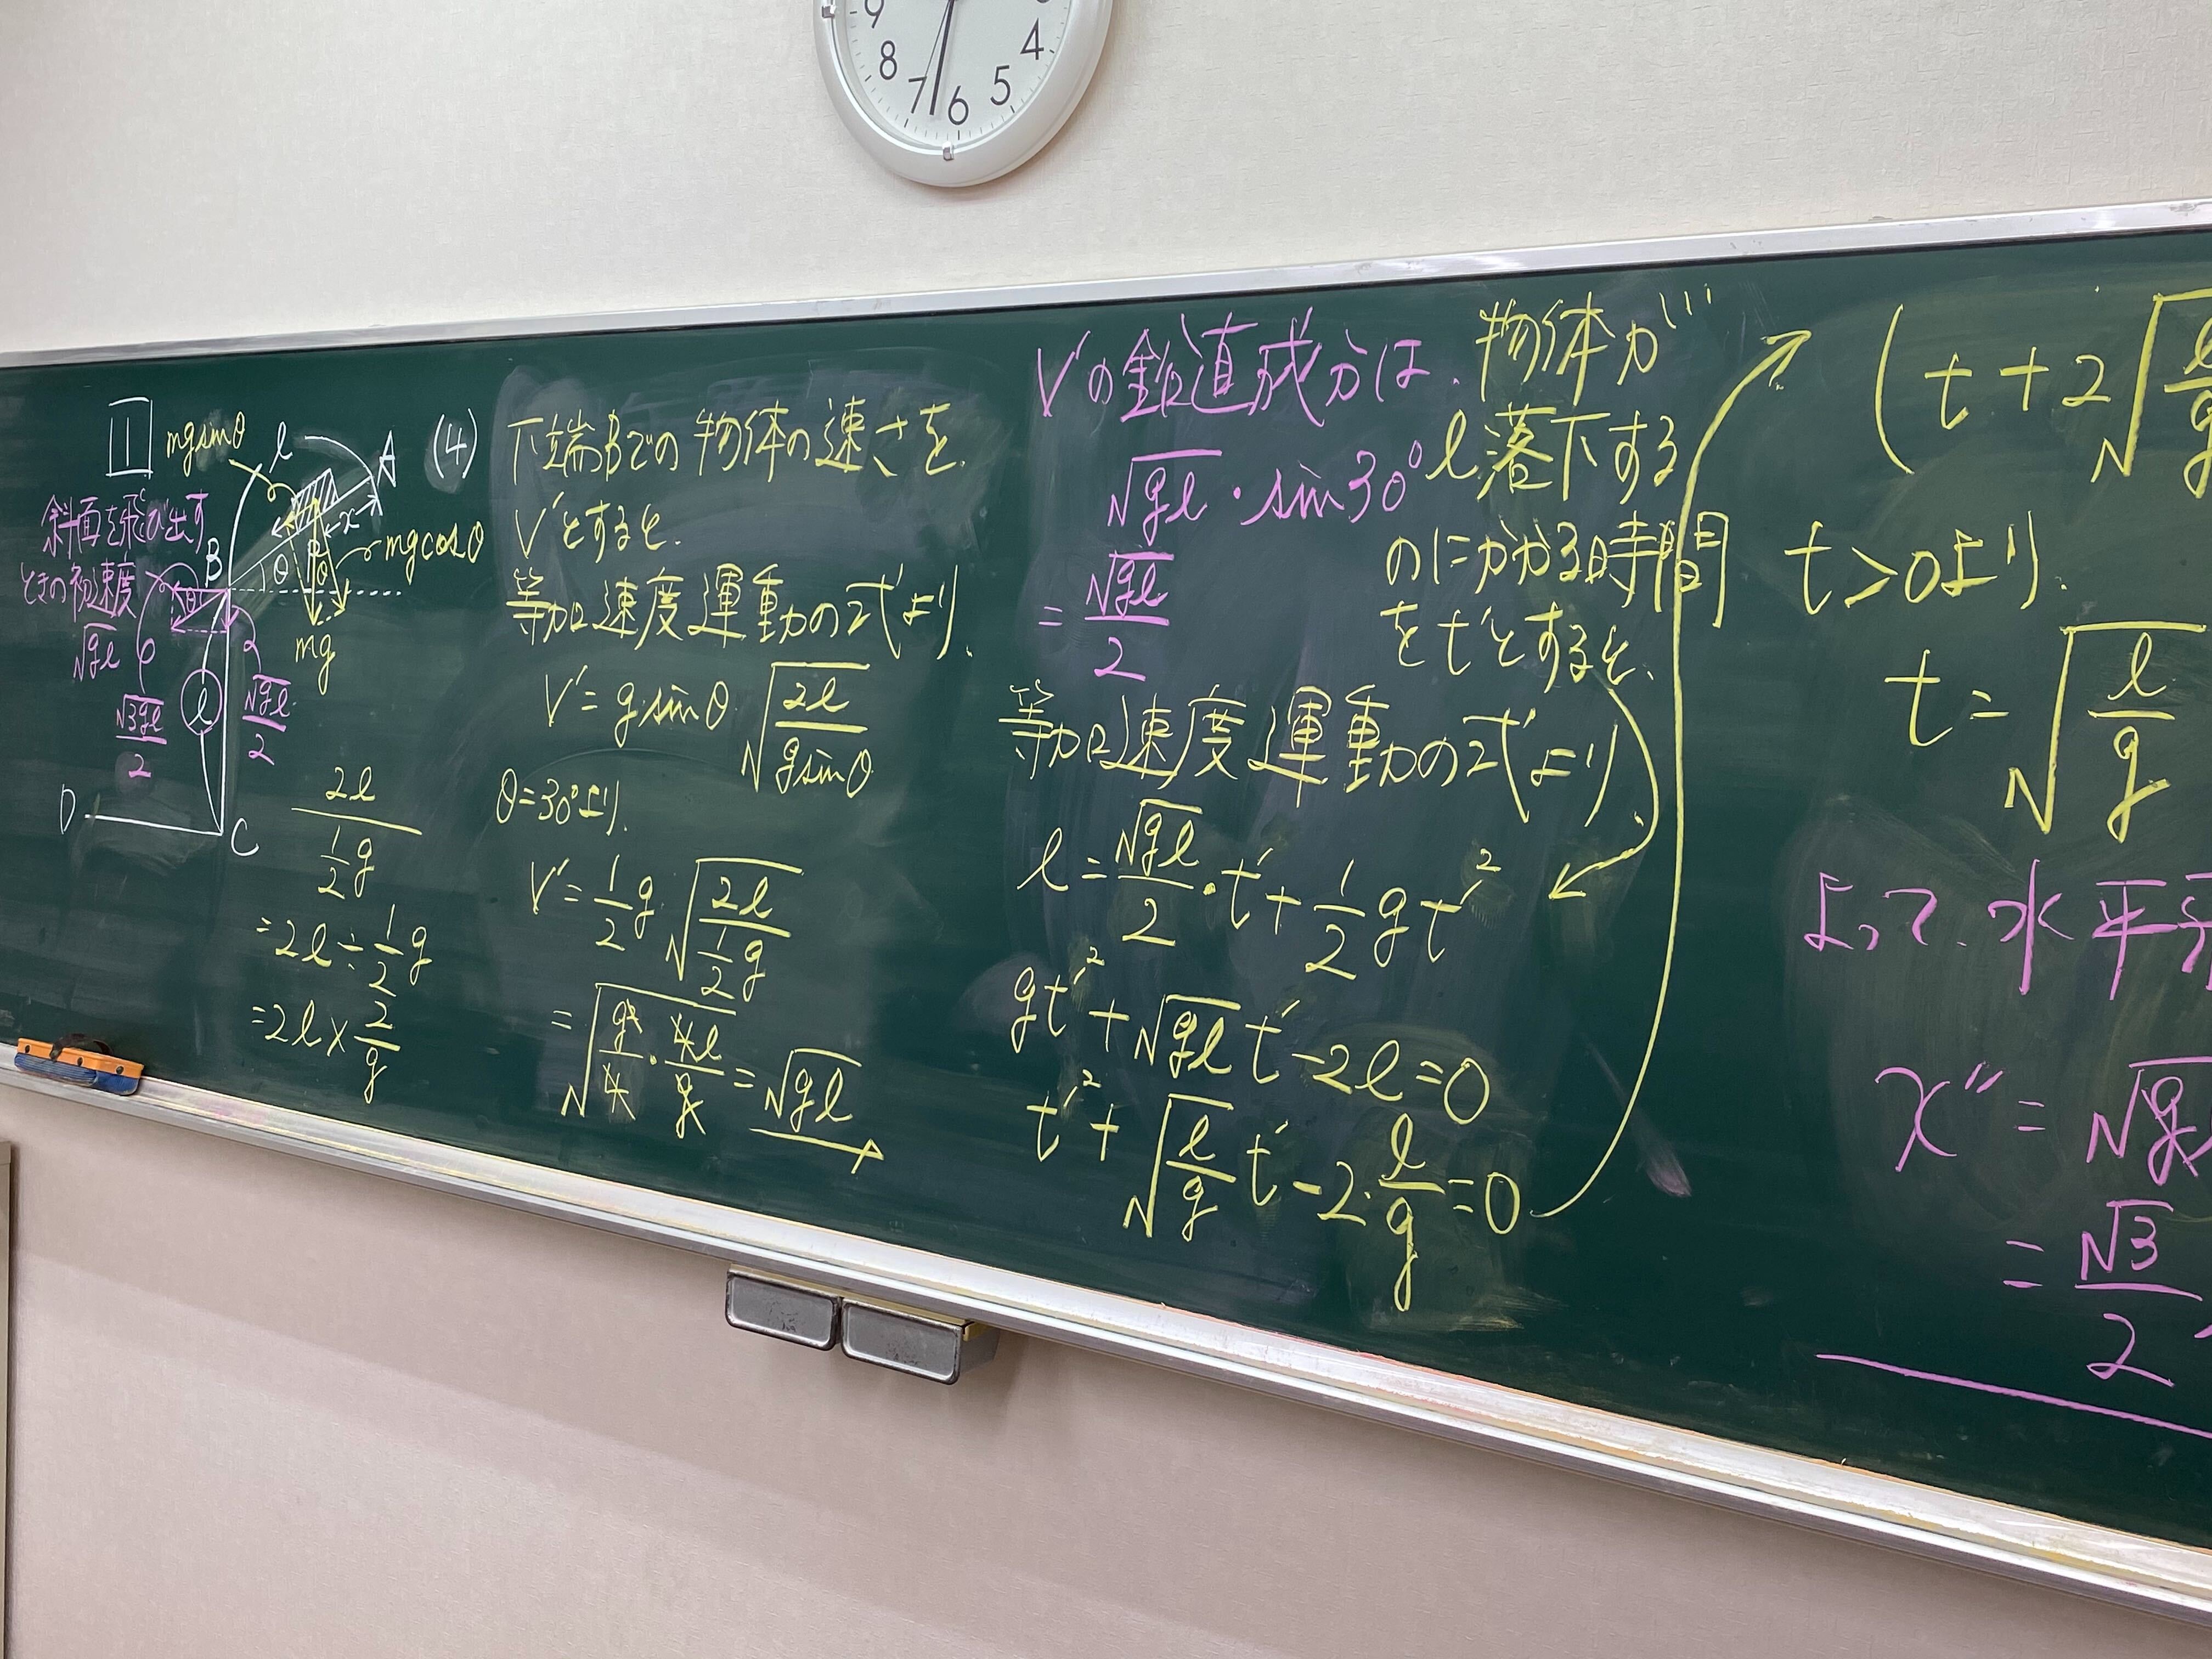 9
8
7
6
5
4
1
mgsinθ
l
A
x
斜面を飛び出す
ときの初速度
√gl
B
θ
θ
θ
mgcosθ
mg
√3gl/2
l
√gl/2
D
C
2l/(1/2 g)
=2l÷1/2 g
=2l×2/g
(4) 下端Bでの物体の速さを、
V'とすると、
等加速度運動の式より、
V'=gsinθ√(2l/gsinθ)
θ=30°より、
V'=1/2 g√(2l/(1/2 g))
=√(g²/4・4l/g)=√gl
V'の鉛直成分は、
√gl・sin30°
=√gl/2
物体が
l落下する
のにかかる時間
をt'とすると、
等加速度運動の式より、
l=√gl/2・t'+1/2 gt'²
gt'²+√gl t'-2l=0
t'²+√(l/g) t'-2・l/g=0
(t+2√
t>0より、
t=√(l/g)
よって、水平
x''=√
=√3/2